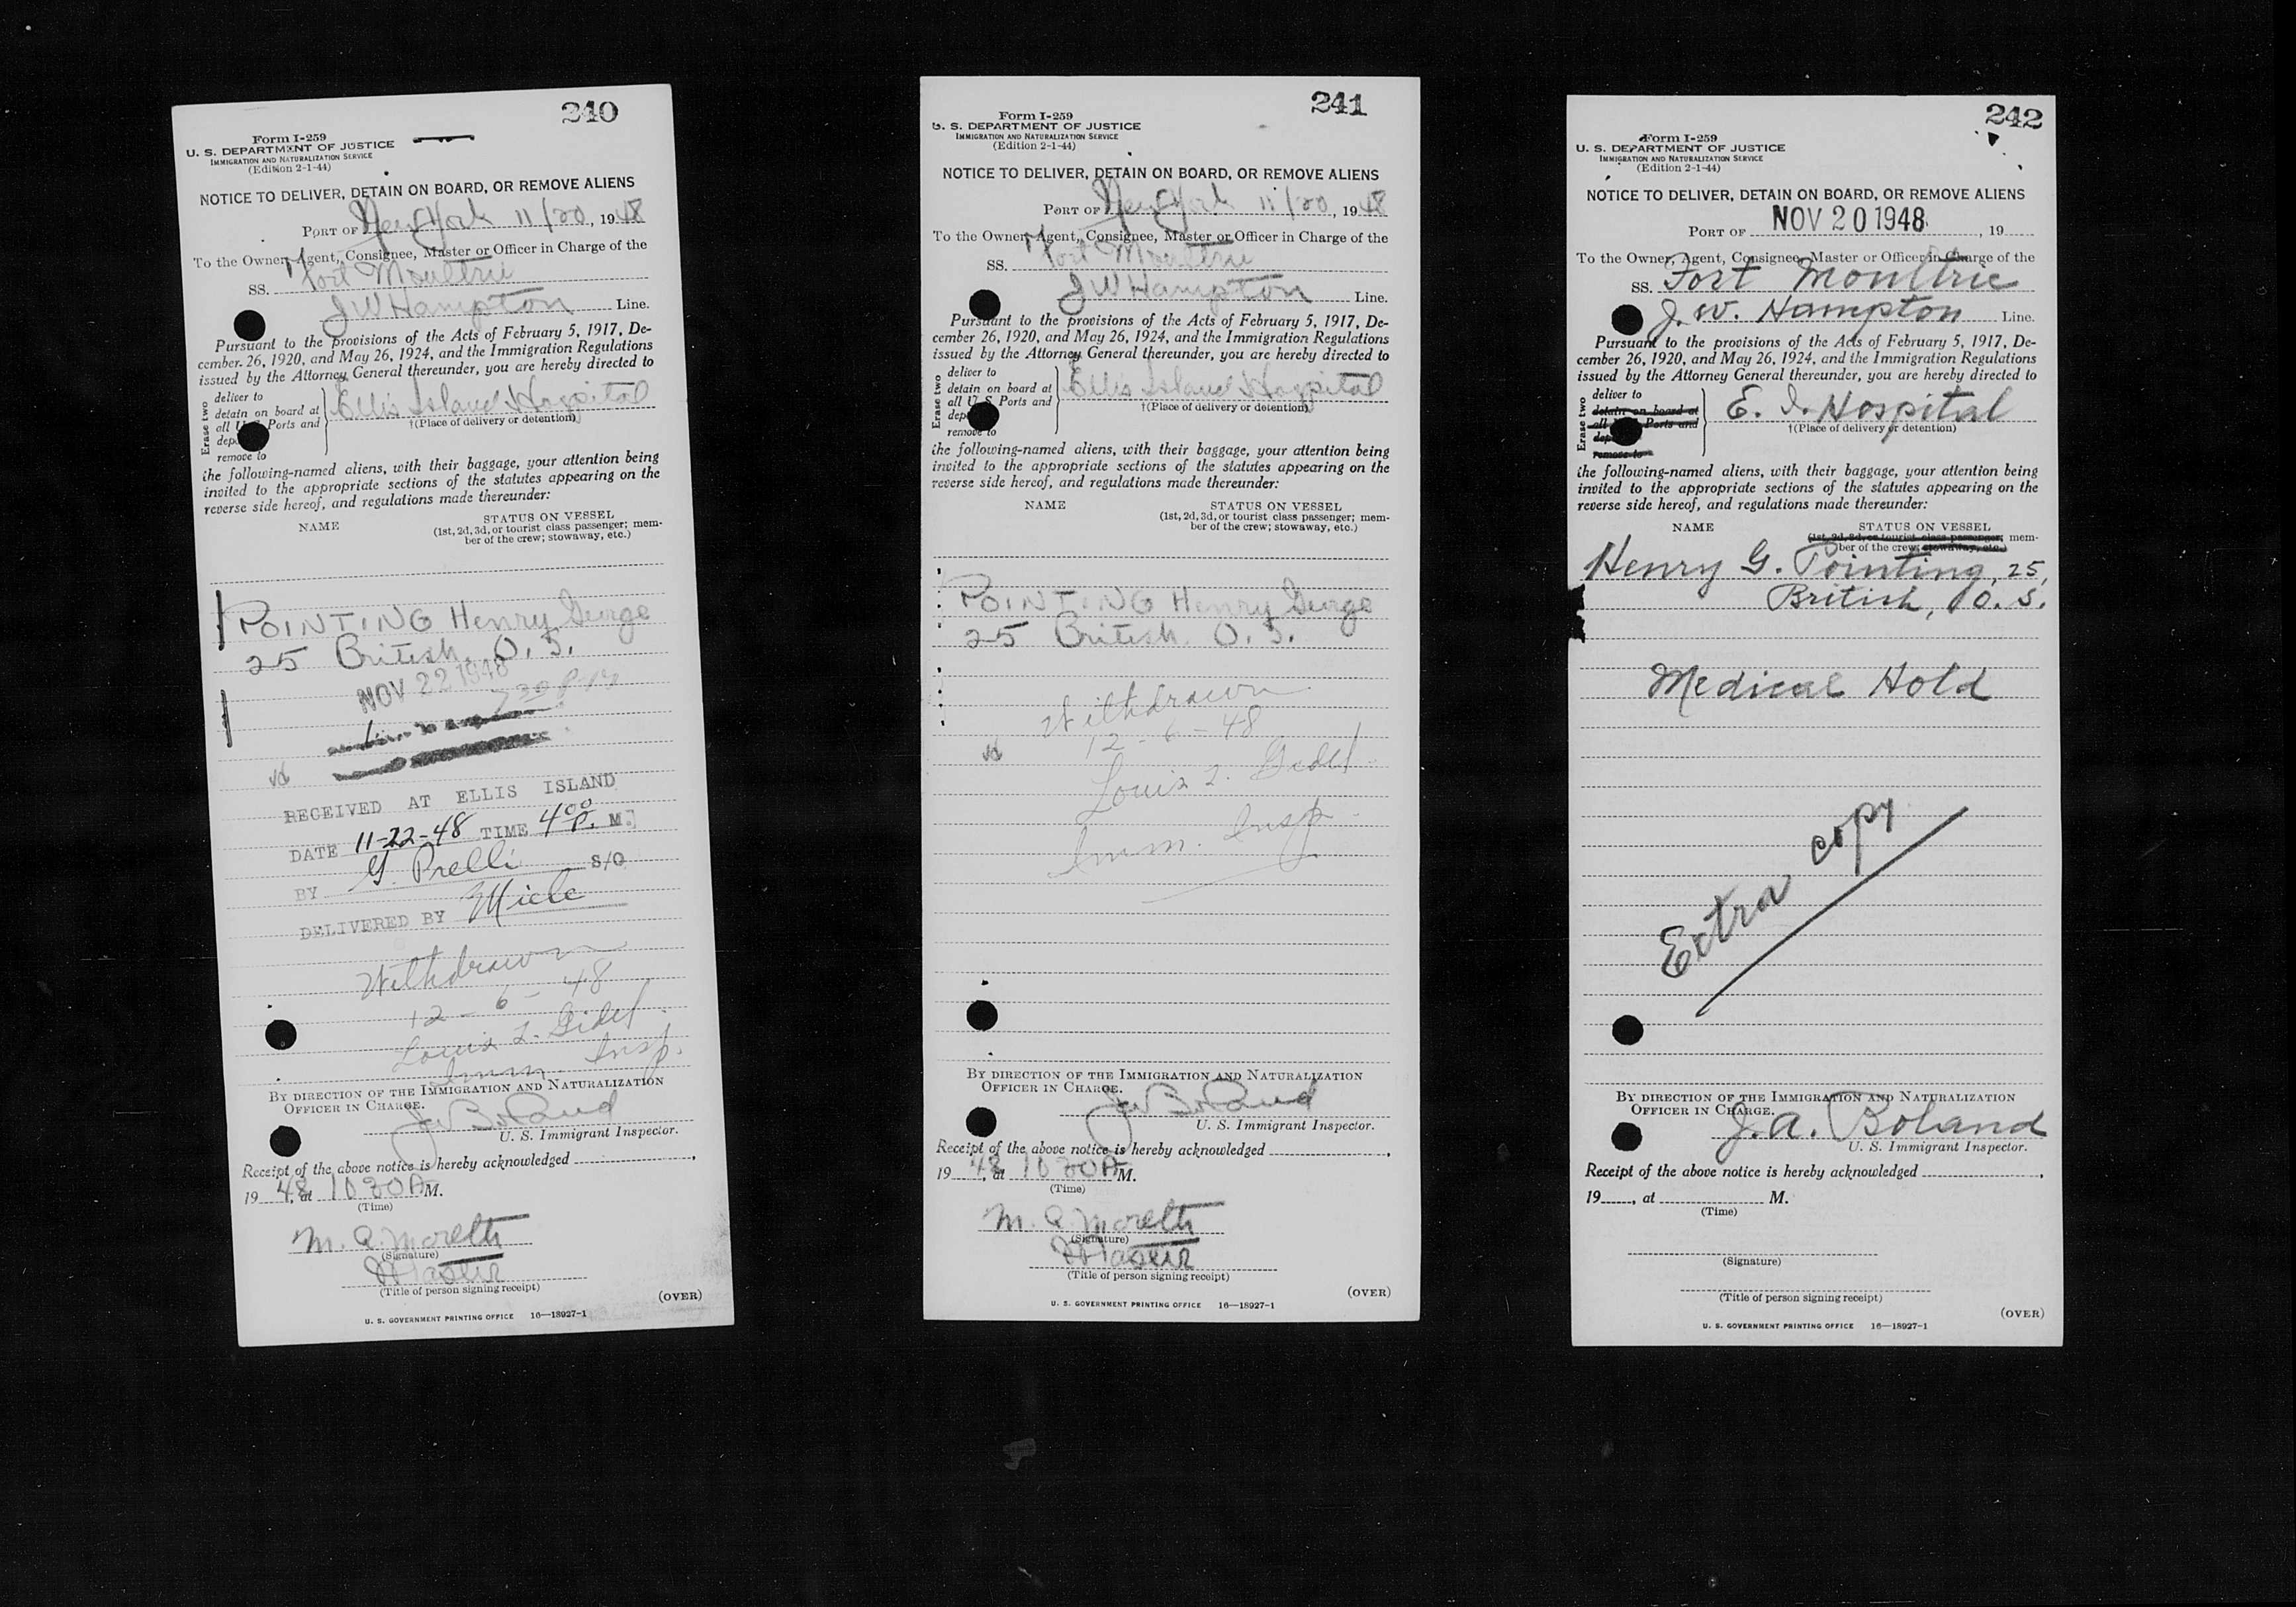 240
Form I-259
U. S. DEPARTMENT OF JUSTICE
IMMIGRATION AND NATURALIZATION SERVICE
(Edition 2-1-44)
NOTICE TO DELIVER, DETAIN ON BOARD, OR REMOVE ALIENS
PORT OF New York 11/20, 1948
To the Owner, Agent, Consignee, Master or Officer in Charge of the
SS. Fort Moultrie
J W Hampton Line.
Pursuant to the provisions of the Acts of February 5, 1917, De-
cember 26, 1920, and May 26, 1924, and the Immigration Regulations
issued by the Attorney General thereunder, you are hereby directed to
Erase two
deliver to
detain on board at
all U. S. Ports and
remove to
Ellis Island Hospital
†(Place of delivery or detention)
the following-named aliens, with their baggage, your attention being
invited to the appropriate sections of the statutes appearing on the
reverse side hereof, and regulations made thereunder:
NAME
STATUS ON VESSEL
(1st, 2d, 3d, or tourist class passenger; mem-
ber of the crew; stowaway, etc.)
POINTING Henry George
25 British. O. S.
NOV 22 1948
RECEIVED AT ELLIS ISLAND
DATE 11-22-48 TIME 4 00 P. M.
BY G. Prelli S/O
DELIVERED BY Miele
Withdrawn
12 - 6 - 48
Louis
Imm. Insp.
BY DIRECTION OF THE IMMIGRATION AND NATURALIZATION
OFFICER IN CHARGE.
Boland
U. S. Immigrant Inspector.
Receipt of the above notice is hereby acknowledged
1948, at 10 30 A M.
(Time)
M.
(Signature)
Master
(Title of person signing receipt)
(OVER)
U. S. GOVERNMENT PRINTING OFFICE 16—18927-1
241
Form I-259
U. S. DEPARTMENT OF JUSTICE
IMMIGRATION AND NATURALIZATION SERVICE
(Edition 2-1-44)
NOTICE TO DELIVER, DETAIN ON BOARD, OR REMOVE ALIENS
PORT OF New York 11/20, 1948
To the Owner, Agent, Consignee, Master or Officer in Charge of the
SS. Fort Moultrie
J W Hampton Line.
Pursuant to the provisions of the Acts of February 5, 1917, De-
cember 26, 1920, and May 26, 1924, and the Immigration Regulations
issued by the Attorney General thereunder, you are hereby directed to
Erase two
deliver to
detain on board at
all U. S. Ports and
remove to
Ellis Island Hospital
†(Place of delivery or detention)
the following-named aliens, with their baggage, your attention being
invited to the appropriate sections of the statutes appearing on the
reverse side hereof, and regulations made thereunder:
NAME
STATUS ON VESSEL
(1st, 2d, 3d, or tourist class passenger; mem-
ber of the crew; stowaway, etc.)
POINTING Henry George
25 British. O. S.
Withdrawn
12 - 6 - 48
Louis
Imm. Insp.
BY DIRECTION OF THE IMMIGRATION AND NATURALIZATION
OFFICER IN CHARGE.
Boland
U. S. Immigrant Inspector.
Receipt of the above notice is hereby acknowledged
1948, at 10 30 A M.
(Time)
M.
(Signature)
Master
(Title of person signing receipt)
(OVER)
U. S. GOVERNMENT PRINTING OFFICE 16—18927-1
242
Form I-259
U. S. DEPARTMENT OF JUSTICE
IMMIGRATION AND NATURALIZATION SERVICE
(Edition 2-1-44)
NOTICE TO DELIVER, DETAIN ON BOARD, OR REMOVE ALIENS
PORT OF NOV 20 1948, 19
To the Owner, Agent, Consignee, Master or Officer in Charge of the
SS. Fort Moultrie
J. W. Hampton Line.
Pursuant to the provisions of the Acts of February 5, 1917, De-
cember 26, 1920, and May 26, 1924, and the Immigration Regulations
issued by the Attorney General thereunder, you are hereby directed to
Erase two
deliver to
detain on board at
all Ports and
remove to
E. I. Hospital
†(Place of delivery or detention)
the following-named aliens, with their baggage, your attention being
invited to the appropriate sections of the statutes appearing on the
reverse side hereof, and regulations made thereunder:
NAME
STATUS ON VESSEL
(1st, 2d, 3d, or tourist class passenger; mem-
ber of the crew; stowaway, etc.)
Henry G. Pointing, 25,
British, O. S.
Medical Hold
Extra copy
BY DIRECTION OF THE IMMIGRATION AND NATURALIZATION
OFFICER IN CHARGE.
J. A. Boland
U. S. Immigrant Inspector.
Receipt of the above notice is hereby acknowledged
19, at M.
(Time)
(Signature)
(Title of person signing receipt)
(OVER)
U. S. GOVERNMENT PRINTING OFFICE 16—18927-1